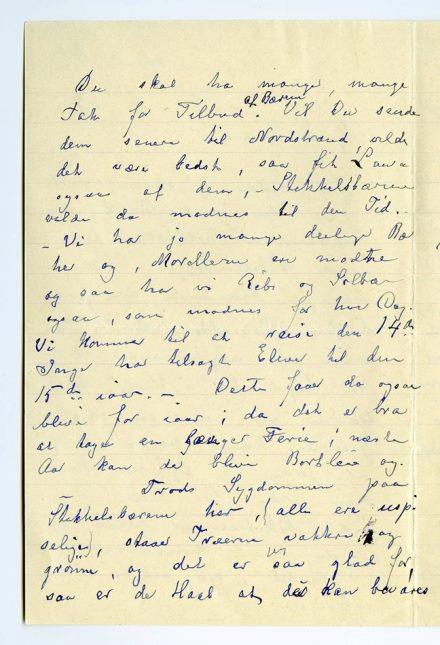 Du skal ha mange, mange
Tak for Tilbud af Bærene. Vil Du sende
dem senere til Nordstrand, vilde
det være bedst, saa fik Laura
ogsaa af dem, – Stikkelsbærene
vilde da modnes til den Tid. –
– Vi har jo mange deilige Bær
her og, Morellerne ere modne
og saa har vi Ribs og Solbær
ogsaa, som modnes for hver Dag.
Vi kommer til at reise den 14de
Inger har tilsagt Elever til den
15de iaar. – Dette faar da ogsaa
blive for iaar; da det er bra
at tage en Ferie; næste
Aar kan de blive Borte og.
Trods Sygdommen paa
Stikkelsbærene her, (alle ere usp
selige), staar Træerne vakkre og
grønne, og det er jeg saa glad for,
saa er de Haab at de kan bevares